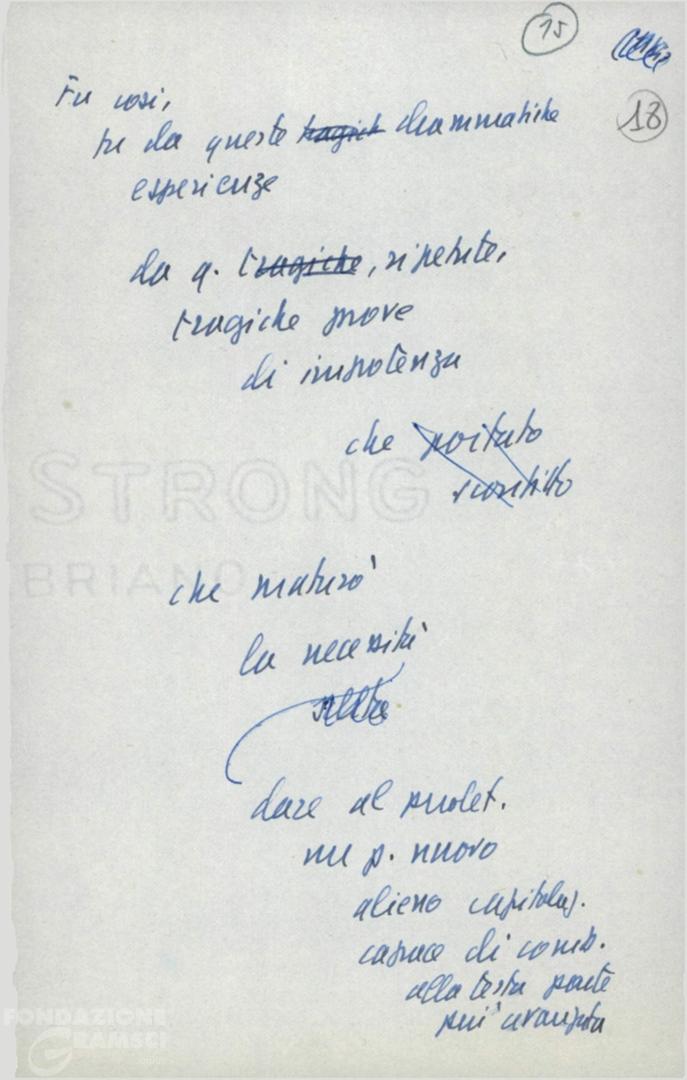 15
18
Fu così,
fu da queste tragich drammatiche
esperienze
da q. tragiche, ripetute,
tragiche prove
di impotenza
che portato
STRONG
che maturò
BRIANO
la necessità
dare al prolet.
un p. nuovo
alieno capitolaz.
capace di comb.
alla testa parte
più avanzata
FONDAZIONE
GRAMSCI